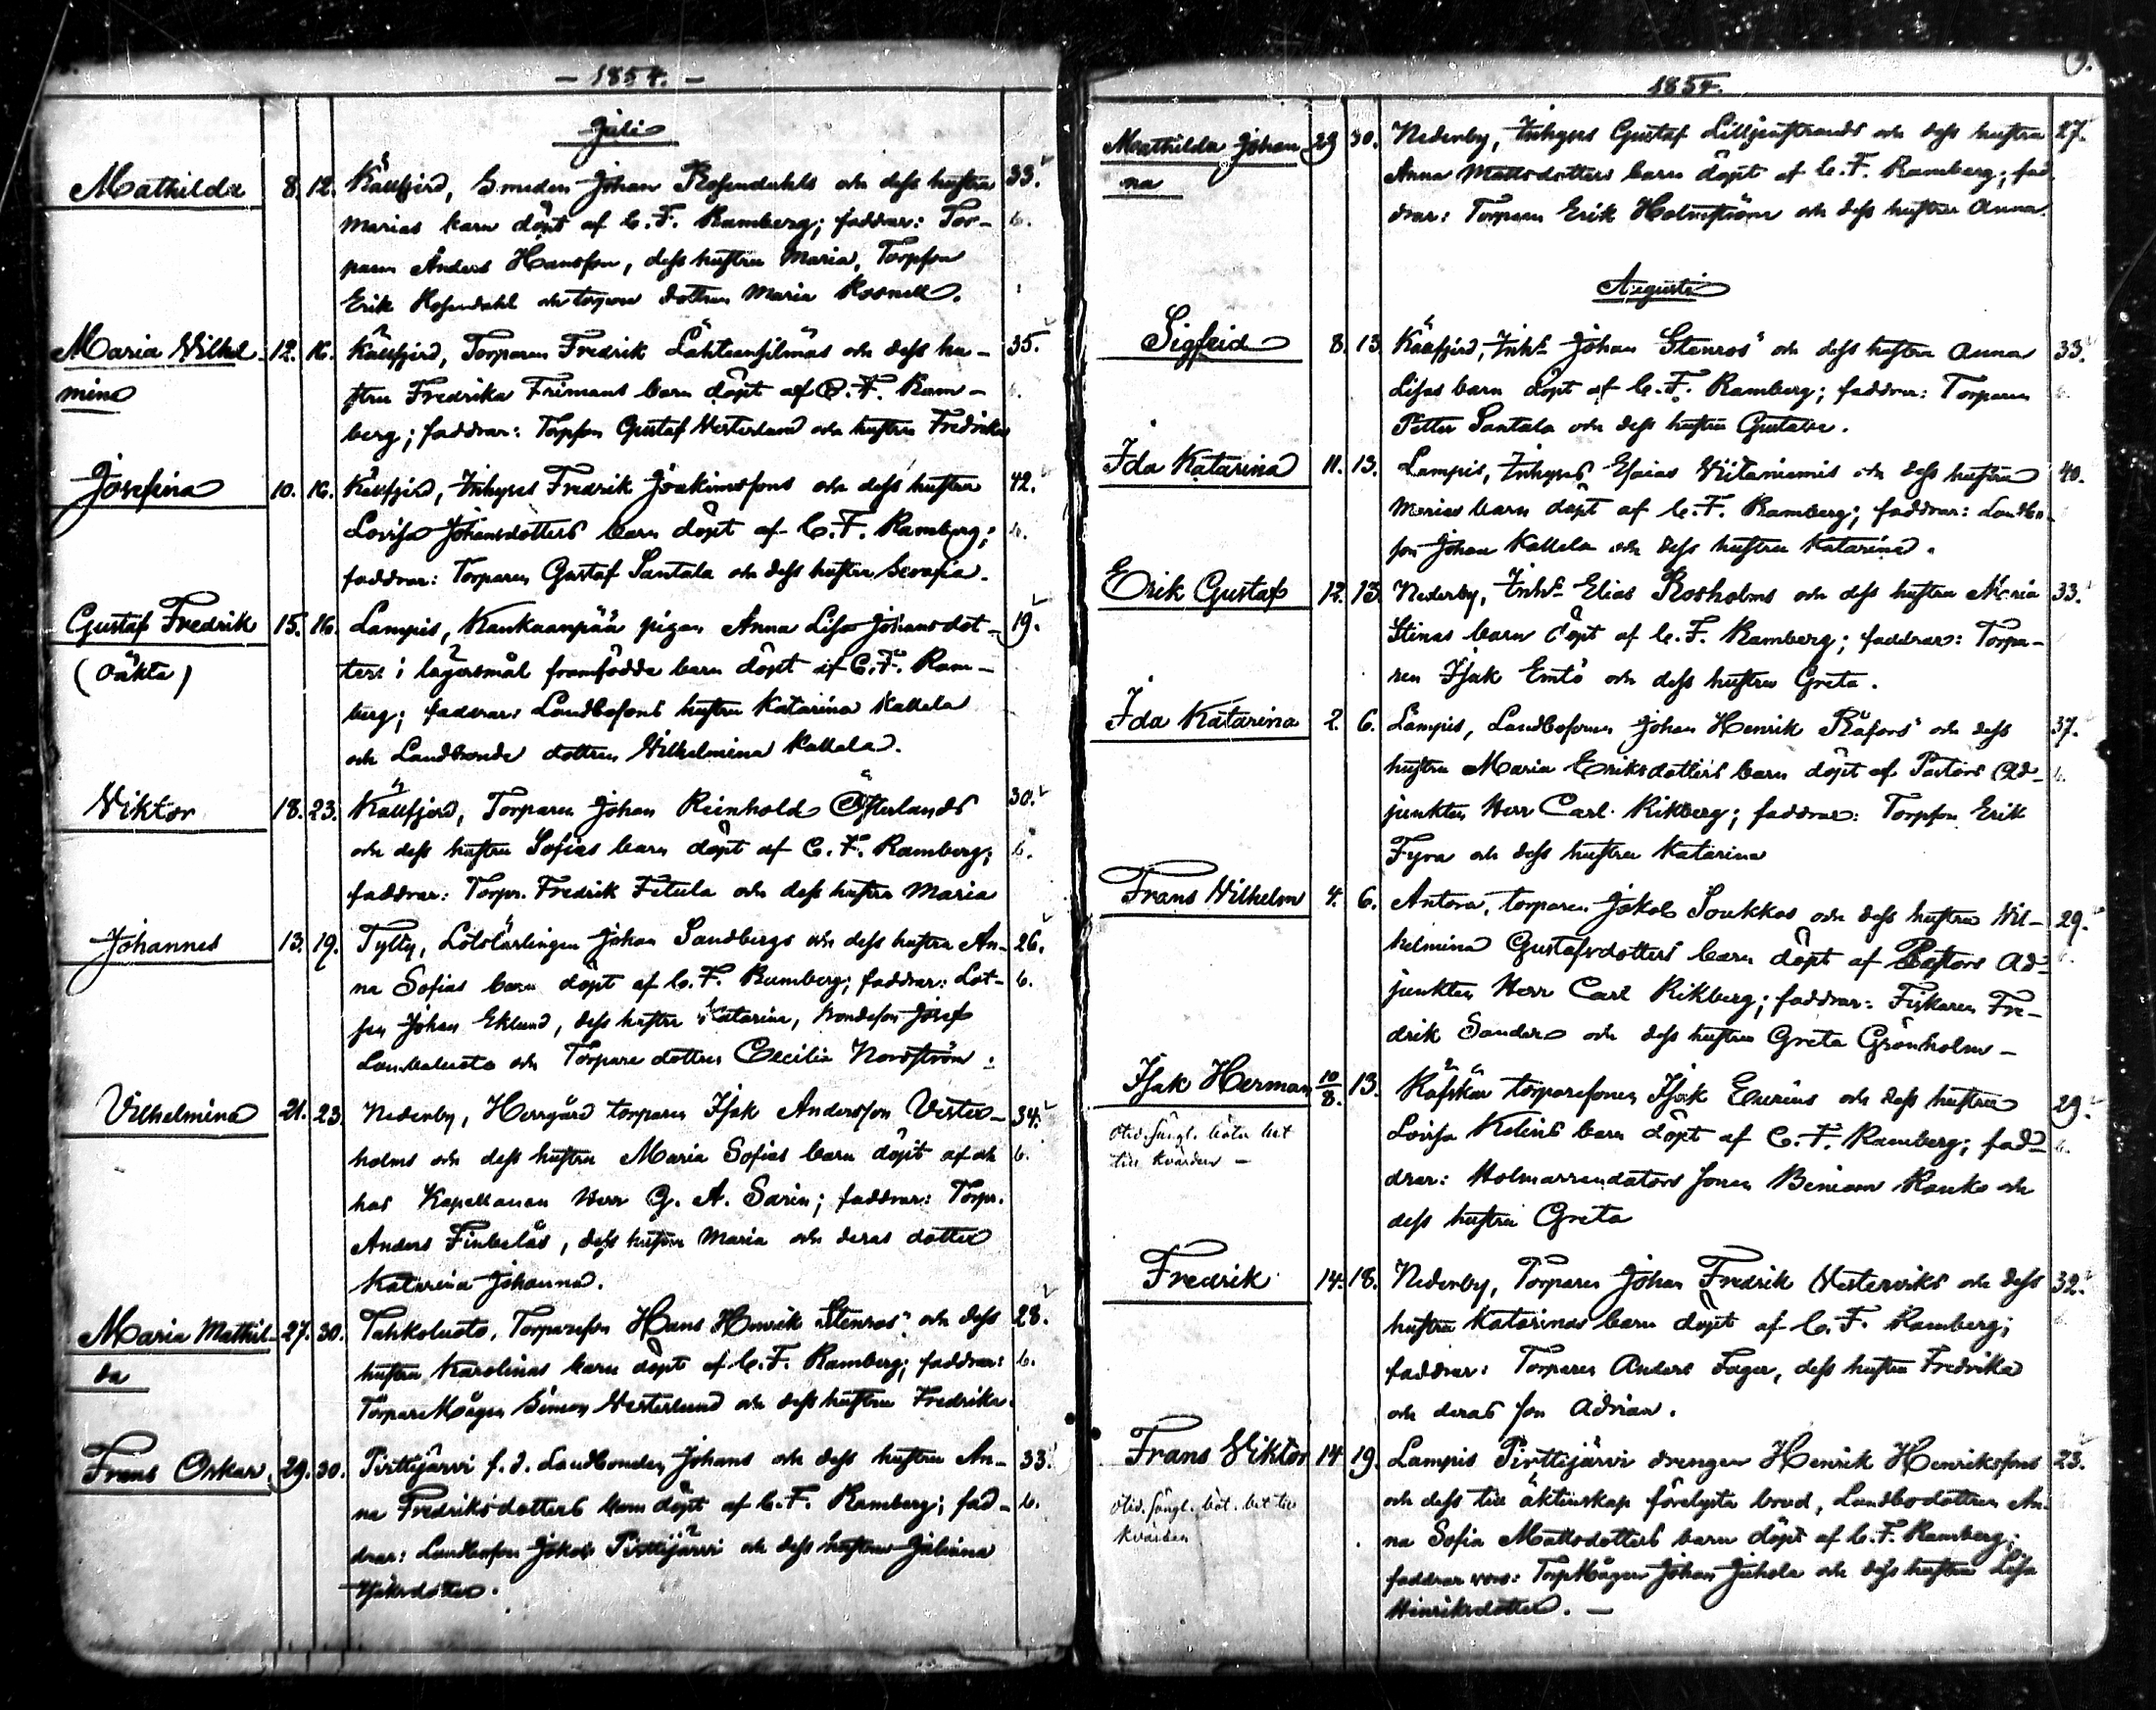 – 1854. –
Juli
Mathilda 8. 12. Kållfjerd, Smeden Johan Rosendahls och dess hustru 33.
Marias barn döpt af C. F. Ramberg; faddrar: Tor- b.
paren Anders Hansson, dess hustru Maria, Torpson
Erik Rosendahl och torpare dottren Maria Rosnell.
Maria Vilhel- 12. 16. Kållfjerd, Torparen Fredrik Lähteensilmäs och dess hu- 35.
mina stru Fredrika Frimans barn döpt af C. F. Ram- b.
berg; faddrar: Torpson Gustaf Westerlund och hustru Fredrika
Josefina 10. 16. Kållfjerd, Inhyses Fredrik Joakimssons och dess hustru 42.
Lovisa Johansdotters barn döpt af C. F. Ramberg; b.
faddrar: Torparen Gustaf Santala och dess hustru Serafia.
Gustaf Fredrik 15. 16. Lampis, Kankaanpää pigan Anna Lisa Johansdot- 19.
(oäkta) ters i lägersmål framfödde barn döpt af C. F. Ram-
berg; faddrar: Landbosons hustru Katarina Kallela
och Landbonde dottren Vilhelmina Kallela.
Viktor 18. 23. Kållfjerd, Torparen Johan Reinhold Österlunds 30.
och dess hustru Sofias barn döpt af C. F. Ramberg; b.
faddrar: Torpr. Fredrik Fetula och dess hustru Maria
Johannes 13. 19. Tylty, Lotslärlingen Johan Sandbergs och dess hustru An- 26.
na Sofias barn döpt af C. F. Ramberg; faddrar: Lot- b.
sen Johan Eklund, dess hustru Katarina, bondeson Josef
och Torpare dottren Cecilia Nordström.
Vilhelmina 21. 23. Nederby, Herrgård torparen Isak Andersson Vester- 34.
holms och dess hustru Maria Sofias barn döpt af och b.
hos Kapellanen Herr G. A. Sarin; faddrar: Torpr.
Anders Finbelås, dess hustru Maria och deras dotter
Katarina Johanna.
Maria Mathil- 27. 30. Tahkoluoto, Torpareson Hans Henrik Stenros' och dess 28.
da hustru Karolinas barn döpt af C. F. Ramberg; faddrar: b.
Torpare Mågen Simon Westerlund och dess hustru Fredrika.
Frans Oskar. 29. 30. Pirttijärvi f. d. Landbonden Johans och dess hustru An- 33.
na Fredriksdotters barn döpt af C. F. Ramberg; fad- b.
drar: Landboson Jakob Pirttijärvi och dess hustru Juliana
Isaksdotter.
1854.
Mathilda Johan 29 30. Nederby, Inhyses Gustaf Liljestrands och dess hustru 27.
na Anna Mattsdotters barn döpt af C. F. Ramberg; fad-
drar: Torparen Erik Holmström och dess hustru Anna.
Augusti
Sigfrid 8. 13. Kållfjerd, Inhs Johan Stenros' och dess hustru Anna 33.
Lisas barn döpt af C. F. Ramberg; faddrar: Torparen b.
Petter Santala och dess hustru Gustava.
Ida Katarina 11. 13. Lampis, Inhyses Esaias Viitaniemis och dess hustru 40.
Marias barn döpt af C. F. Ramberg; faddrar: Landbo-
son Johan Kallela och dess hustru Katarina.
Erik Gustaf 12. 13. Nederby, Inhs Elias Rosholms och dess hustru Maria 33.
Stinas barn döpt af C. F. Ramberg; faddrar: Torpa-
ren Isak Emtö och dess hustru Greta.
Ida Katarina 2. 6. Lampis, Landbosonen Johan Henrik Råfors' och dess 37.
hustru Maria Eriksdotters barn döpt af Pastors Ad- b.
junkten Herr Carl Rikberg; faddrar: Torpson Erik
Fyra och dess hustru Katarina
Frans Vilhelm 4. 6. Antora, torparen Jakob Soukkas och dess hustru Vil- 29.
helmina Gustafsdotters barn döpt af Pastors Ad- b.
junkten Herr Carl Rikberg; faddrar: Fiskaren Fre-
drik Sander och dess hustru Greta Grönholm –
Isak Herman 10/8. 13. Räfskär torparesonen Isak Eurens och dess hustru 29.
Lovisa Kelins barn döpt af C. F. Ramberg; fad- b.
till kvarden –
drar: Holmarrendators sonen Beniam Ranko och
dess hustru Greta
Fredrik 14. 18. Nederby, Torparen Johan Fredrik Westerviks och dess 32.
hustru Katarinas barn döpt af C. F. Ramberg; b.
faddrar: Torparen Anders Fager, dess hustru Fredrika
och deras son Adrian.
Frans Viktor 14 19. Lampis Pirttijärvi drengen Henrik Henrikssons 23.
och dess till äktenskap förelysta brud, Landbodottren An-
kvarden na Sofia Mattsdotters barn döpt af C. F. Ramberg;
faddrar voro: TorpMågen Johan Juhola och dess hustru Lisa
Henriksdotter. –